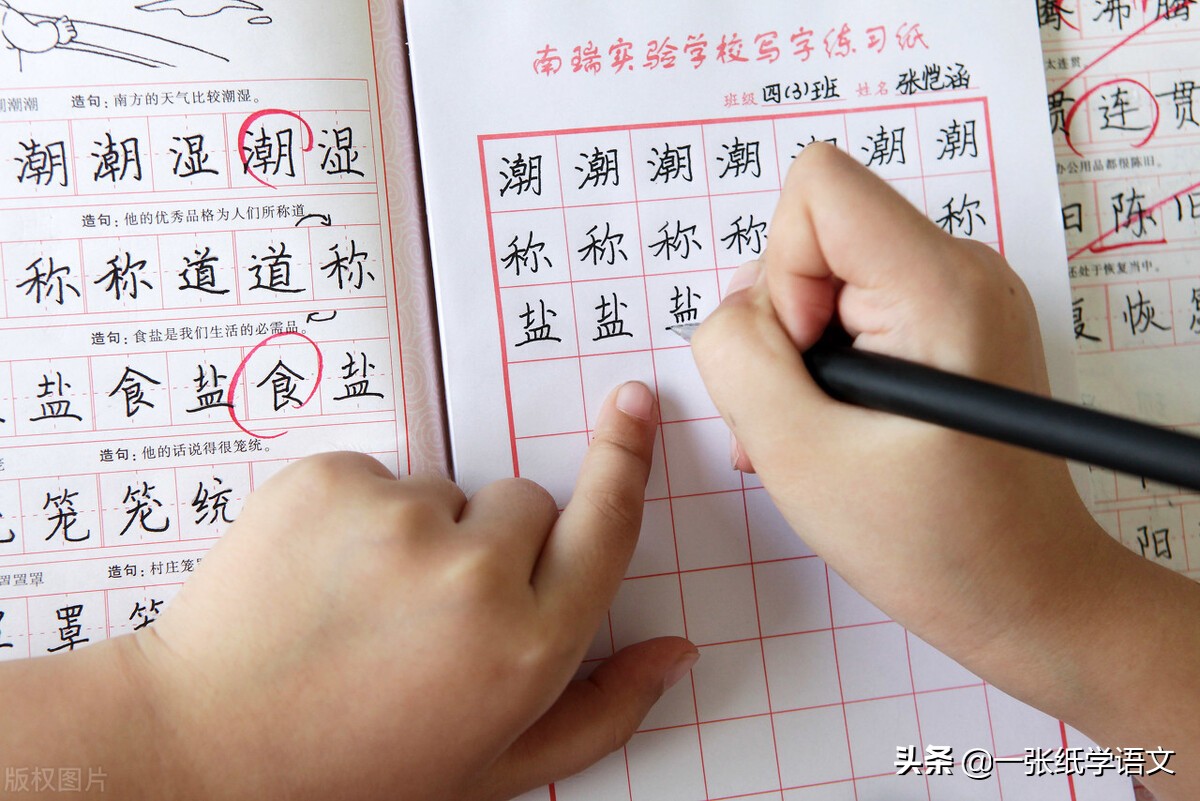 潮潮 造句：南方的天气比较潮湿。
潮 潮 湿 潮 湿
造句：他的优秀品格为人们所称道
称 称 道 道 称
造句：食盐是我们生活的必需品。
盐 食 盐 食 盐
造句：他的话说得很笼统。
笼 笼 统
罩罩 造句：村庄笼
罩 笼
南瑞实验学校写字练习纸
班级 四(3)班 姓名 张恺涵
潮 潮 潮 潮 潮 潮 潮
称 称 称 称 称
盐 盐 盐
沸 腾
太连贯
贯 连 贯
办公用品都很陈旧。
旧 陈 旧
还处于恢复当中。
复 恢
阳
版权图片
头条 @一张纸学语文